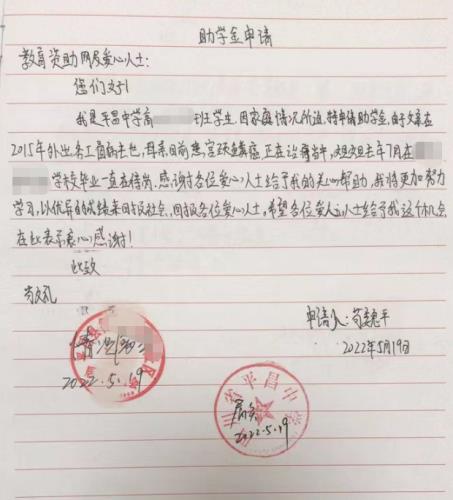 助学金申请
教育资助网及爱心人士:
您们好!
我是平昌中学高 班学生,因家庭情况所迫,特申请助学金,由于父亲在
2015年外出务工 去世,母亲目前患 癌,正在治疗当中,姐姐去年7月在
学校毕业一直在待岗。感谢各位爱心人士给予我的关心帮助,我将更加努力
学习,以优异的成绩来回报社会,回报各位爱心人士。希望各位爱心人士给予我这个机会
在此表示衷心感谢!
此致
敬礼
申请人:苟 平
2022年5月19日
情况属实
2022.5.19
四川省平昌中学
属实
2022.5.19